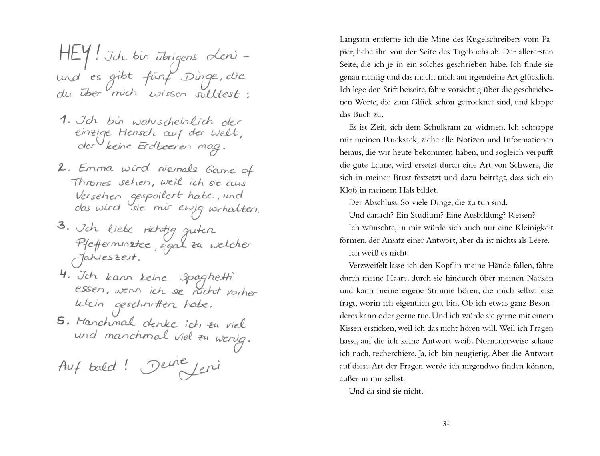 HEY! Ich bin übrigens Leni –
und es gibt fünf Dinge, die
du über mich wissen solltest:
1. Ich bin wahrscheinlich der
einzige Mensch auf der Welt,
der keine Erdbeeren mag.
2. Emma wird niemals Game of
Thrones sehen, weil ich sie aus
Versehen gespoilert habe, und
das wird sie mir ewig vorhalten.
3. Ich liebe richtig guten
Pfefferminztee, egal zu welcher
Jahreszeit.
4. Ich kann keine Spaghetti
essen, wenn ich sie nicht vorher
klein geschnitten habe.
5. Manchmal denke ich zu viel
und manchmal viel zu wenig.
Auf bald! Deine Leni
Langsam entferne ich die Mine des Kugelschreibers vom Pa-
pier, hebe ihn von der Seite des Tagebuchs ab. Der allerersten
Seite, die ich je in ein solches geschrieben habe. Ich finde sie
genau richtig und das macht mich auf irgendeine Art glücklich.
Ich lege den Stift beiseite, fahre vorsichtig über die geschriebe-
nen Worte, die zum Glück schon getrocknet sind, und klappe
das Buch zu.
Es ist Zeit, sich dem Schulkram zu widmen. Ich schnappe
mir meinen Rucksack, ziehe alle Notizen und Informationen
heraus, die wir heute bekommen haben, und sogleich verpufft
die gute Laune, wird ersetzt durch eine Art von Schwere, die
sich in meiner Brust festsetzt und dazu beiträgt, dass sich ein
Kloß in meinem Hals bildet.
Der Abschluss. So viele Dinge, die zu tun sind.
Und danach? Ein Studium? Eine Ausbildung? Reisen?
Ich wünschte, in mir würde sich auch nur eine Kleinigkeit
formen, der Ansatz einer Antwort, aber da ist nichts als Leere.
Ich weiß es nicht.
Verzweifelt lasse ich den Kopf in meine Hände fallen, fahre
durch meine Haare, durch sie hindurch über meinen Nacken
und kann meine eigene Stimme hören, die mich selbst
fragt, worin ich eigentlich gut bin. Ob ich etwas ganz Beson-
deres kann oder gerne tue. Und ich würde sie gerne mit einem
Kissen ersticken, weil ich das nicht hören will. Weil ich Fragen
hasse, auf die ich keine Antwort weiß. Normalerweise schaue
ich nach, recherchiere. Ja, ich bin neugierig. Aber die Antwort
auf diese Art der Fragen werde ich nirgendwo finden können,
außer in mir selbst.
Und da sind sie nicht.